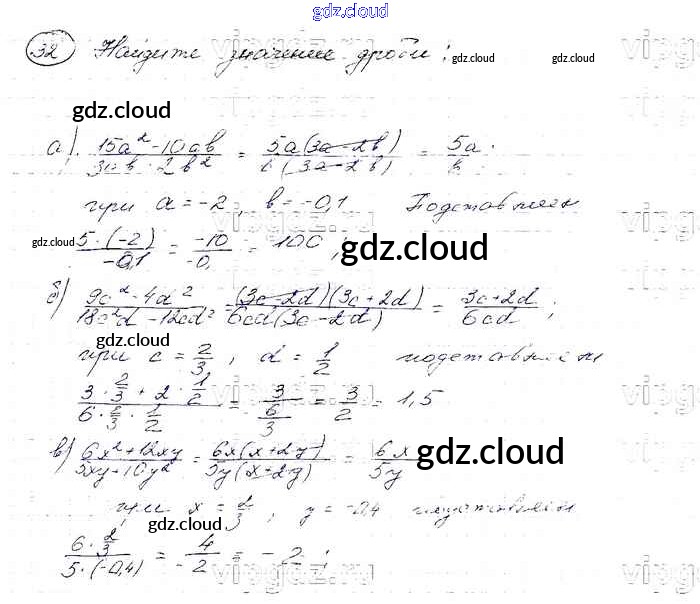 gdz.cloud
32 Найдите значение дроби:
gdz.cloud gdz.cloud
gdz.cloud
а). (15a² - 10ab)/(3ab - 2b²) = 5a(3a - 2b)/b(3a - 2b) = 5a/b
при a = -2, b = -0,1 Подставляем
gdz.cloud 5·(-2)/-0,1 = -10/-0, = 100; gdz.cloud
б) (9c² - 4d²)/(18c²d - 12cd²) = (3c - 2d)(3c + 2d)/6cd(3c - 2d) = (3c + 2d)/6cd;
при c = 2/3, d = 1/2 подставляем
(3·2/3 + 2·1/2)/(6·2/3·1/2) = 3/(6/3) = 3/2 = 1,5
в) (6x² + 12xy)/(5xy + 10y²) = 6x(x + 2y)/5y(x + 2y) = 6x/5y gdz.cloud
при x = 2/3; y = -0,4 подставляем
gdz.cloud
(6·2/3)/(5·(-0,4)) = 4/-2 = -2;